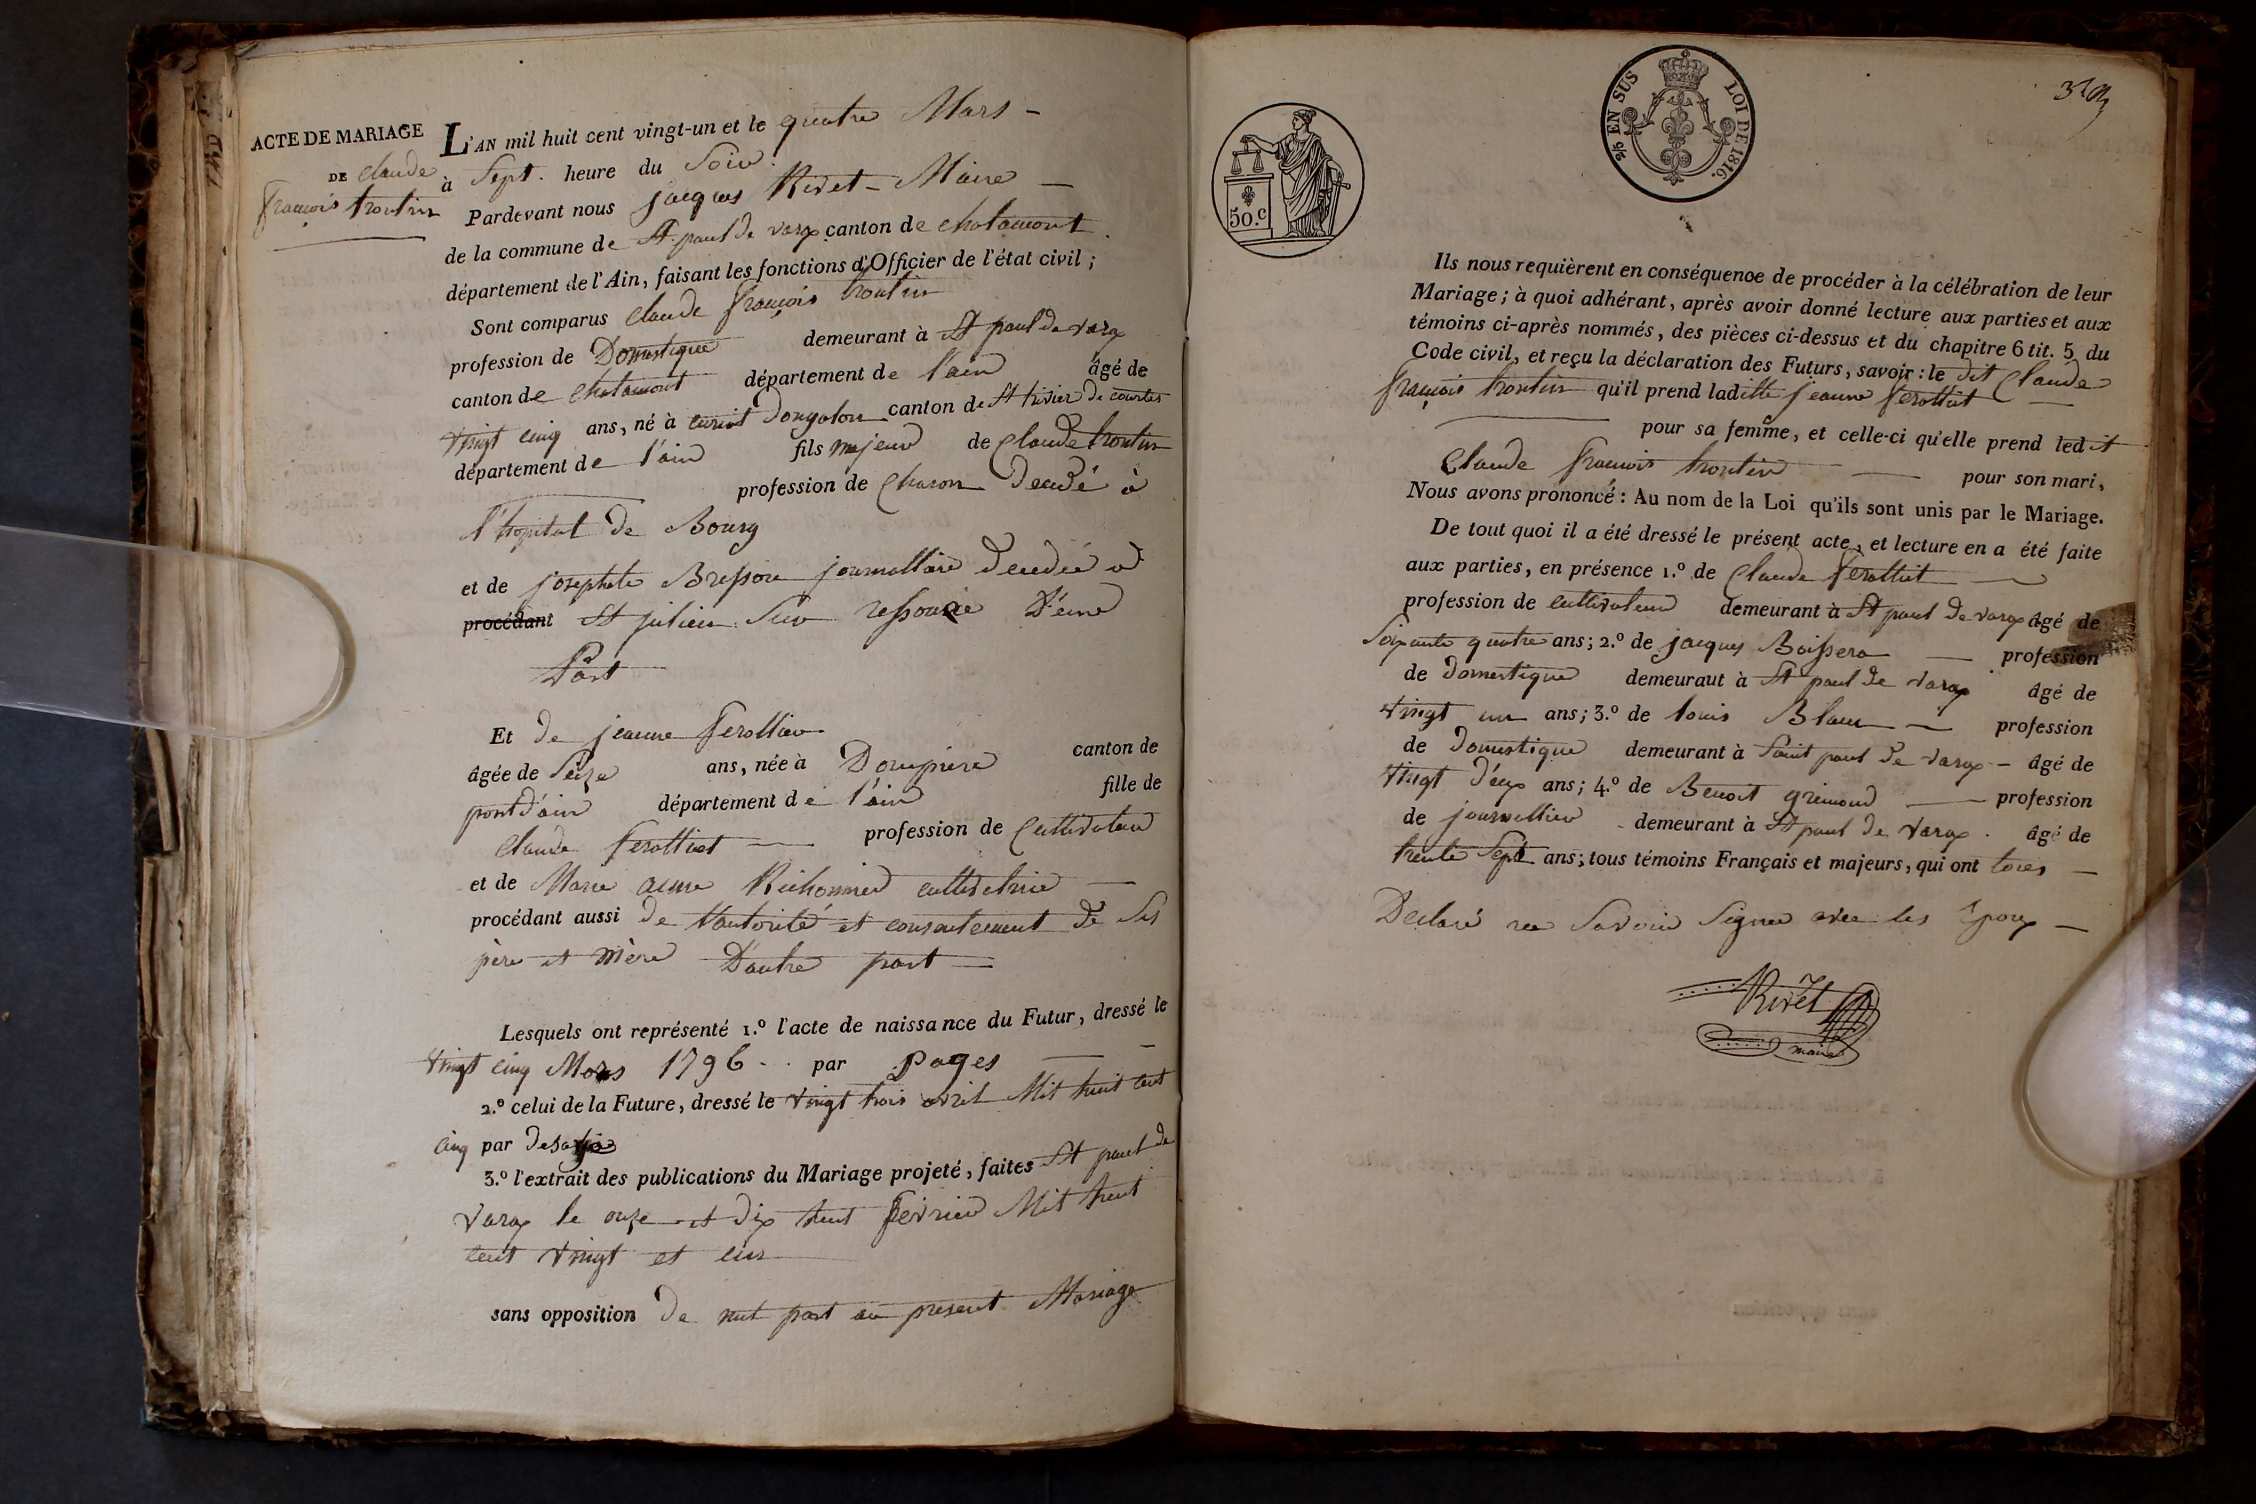 ACTE DE MARIAGE
DE Claude
françois troutin
L'AN mil huit cent vingt-un et le quatre Mars
à Sept heure du Soir
Pardevant nous jacques Rivet Maire
de la commune de St paul de varax canton de chalamont
département de l'Ain, faisant les fonctions d'Officier de l'état civil ;
Sont comparus claude françois troutin
profession de Domestique demeurant à St paul de varax
canton de chalamont département de l'ain âgé de
vingt cinq ans, né à canton de St trivier de courtes
département de l'ain fils majeur de Claude troutin
profession de Charon decedé à
l'hopital de Bourg
et de josephte Bresson journallière decedée à
procédant St julien Sur ressouze D'une
Part
Et de jeanne ferolliet
âgée de Seize ans, née à Dompierre canton de
pont d'ain département de l'ain fille de
claude ferolliet profession de Cultivateur
et de Marie anne Richonnier cultivatrice
procédant aussi de l'autorité et consentement de Ses
père et mère D'autre part
Lesquels ont représenté 1.º l'acte de naissance du Futur, dressé le
vingt cinq Mars 1796 par pages
2.º celui de la Future, dressé le vingt trois avril Mil huit cent
cinq par
3.º l'extrait des publications du Mariage projeté, faites St paul de
varax le onze et dix huit fevrier Mil huit
cent vingt et un
sans opposition de nul part au present Mariage
50.C
2/5 EN SUS LOI DE 1816.
Ils nous requièrent en conséquence de procéder à la célébration de leur
Mariage ; à quoi adhérant, après avoir donné lecture aux parties et aux
témoins ci-après nommés, des pièces ci-dessus et du chapitre 6 tit. 5 du
Code civil, et reçu la déclaration des Futurs, savoir : le dit Claude
françois troutin qu'il prend laditte jeanne ferolliet
pour sa femme, et celle-ci qu'elle prend ledit
Claude francois troutin pour son mari,
Nous avons prononcé : Au nom de la Loi qu'ils sont unis par le Mariage.
De tout quoi il a été dressé le présent acte, et lecture en a été faite
aux parties, en présence 1.º de Claude ferolliet
profession de cultivateur demeurant à St paul de varax âgé de
Soixante quatre ans ; 2.º de jacques Boissera profession
de domestique demeuraut à St paul de varax âgé de
vingt un ans ; 3.º de louis Blanc profession
de domestique demeurant à Saint paul de varax âgé de
vingt deux ans ; 4.º de Benoit grimond profession
de journallier demeurant à St paul de varax âgé de
trente Sept ans ; tous témoins Français et majeurs, qui ont tous
Declaré ne Savoir Signer avec les Epoux
Rivet
maire